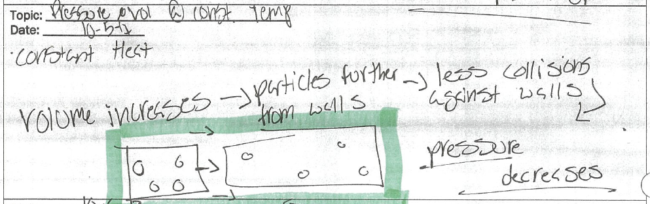 Topic: Pressure & vol @ const. temp
Date: 10-5-1
· constant Heat
volume increases → particles further from walls → less collisions against walls
pressure decreases